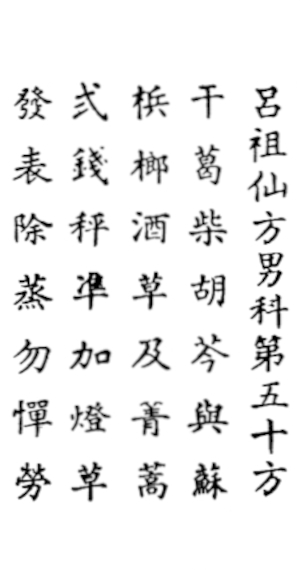 呂祖仙方男科第五十方
干葛柴胡芩與蘇
梹榔酒草及菁蒿
弍錢秤凖加燈草
發表除蒸勿憚勞